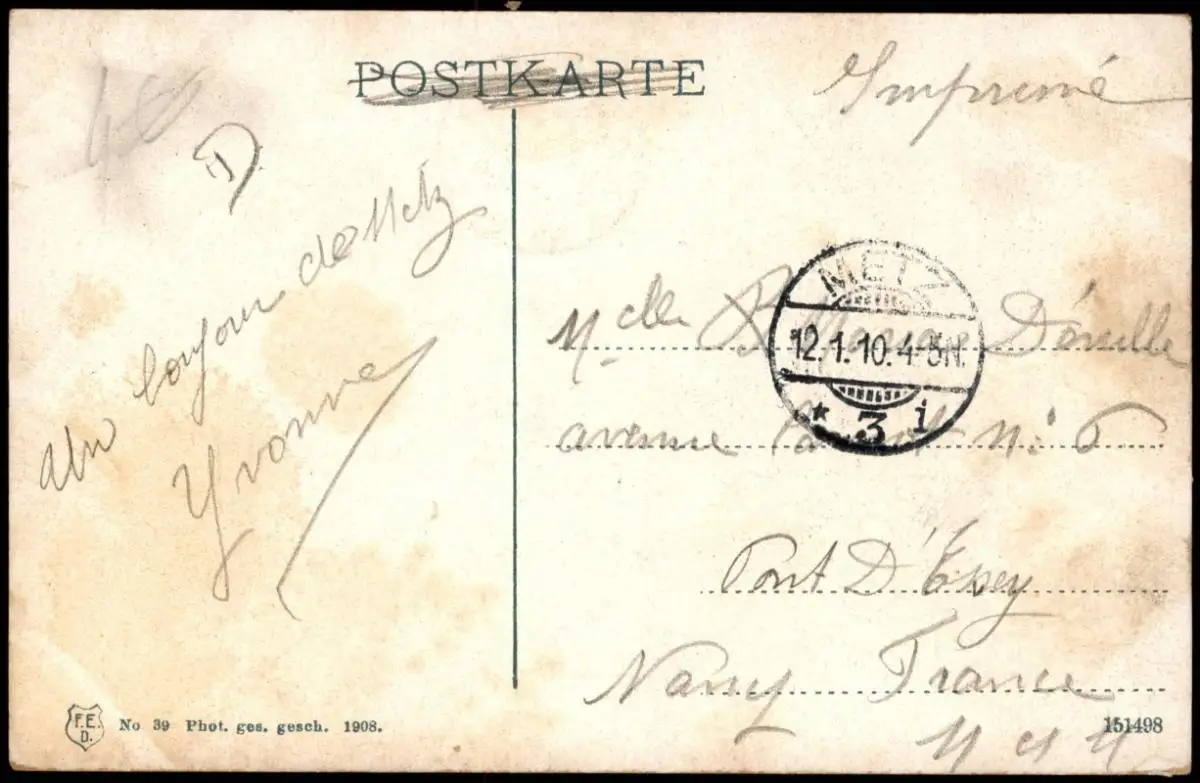 POSTKARTE
Imprimé
D
un bonjour de Metz
Yvonne
METZ
12.1.10. 4-5N.
* 3 i
Mcelle Déville
avenue n: 6
Pont D'Essey
Nancy France
F.E.D.
No 39 Phot. ges. gesch. 1908.
151498
M et M